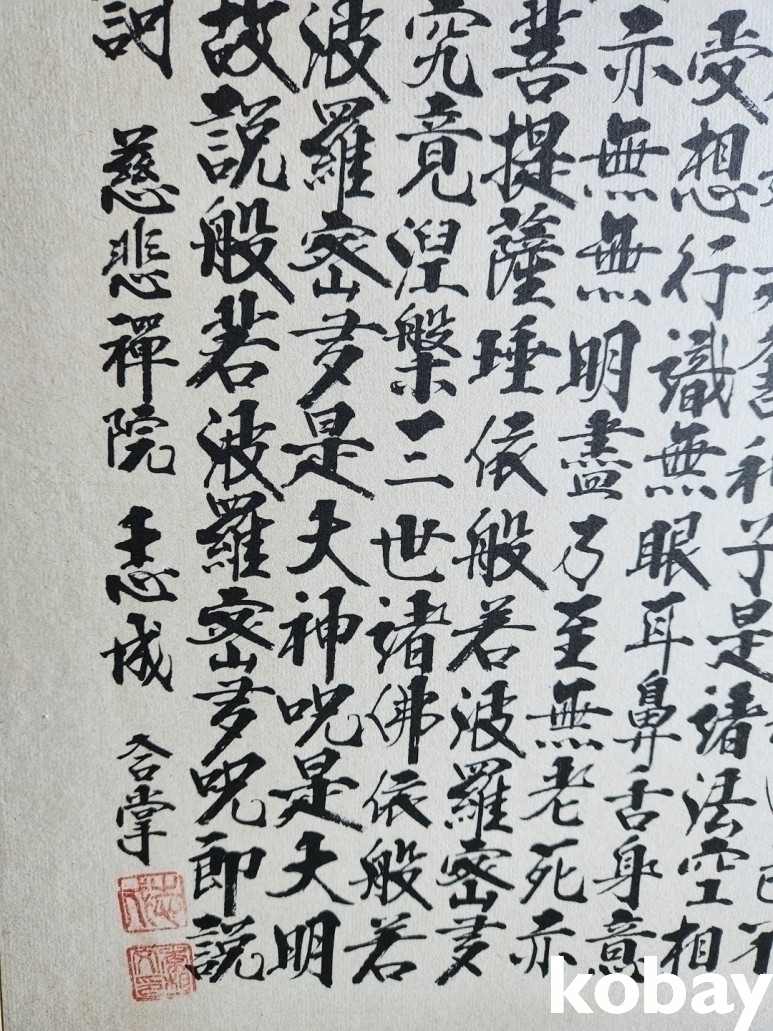 利子是諸法空相
受想行識無眼耳鼻舌身意
亦無無明盡乃至無老死亦
菩提薩埵依般若波羅蜜多
究竟涅槃三世諸佛依般若
波羅蜜多是大神呪是大明
故說般若波羅蜜多呪即說
訶 慈悲禪院 王志成 合掌
kobay